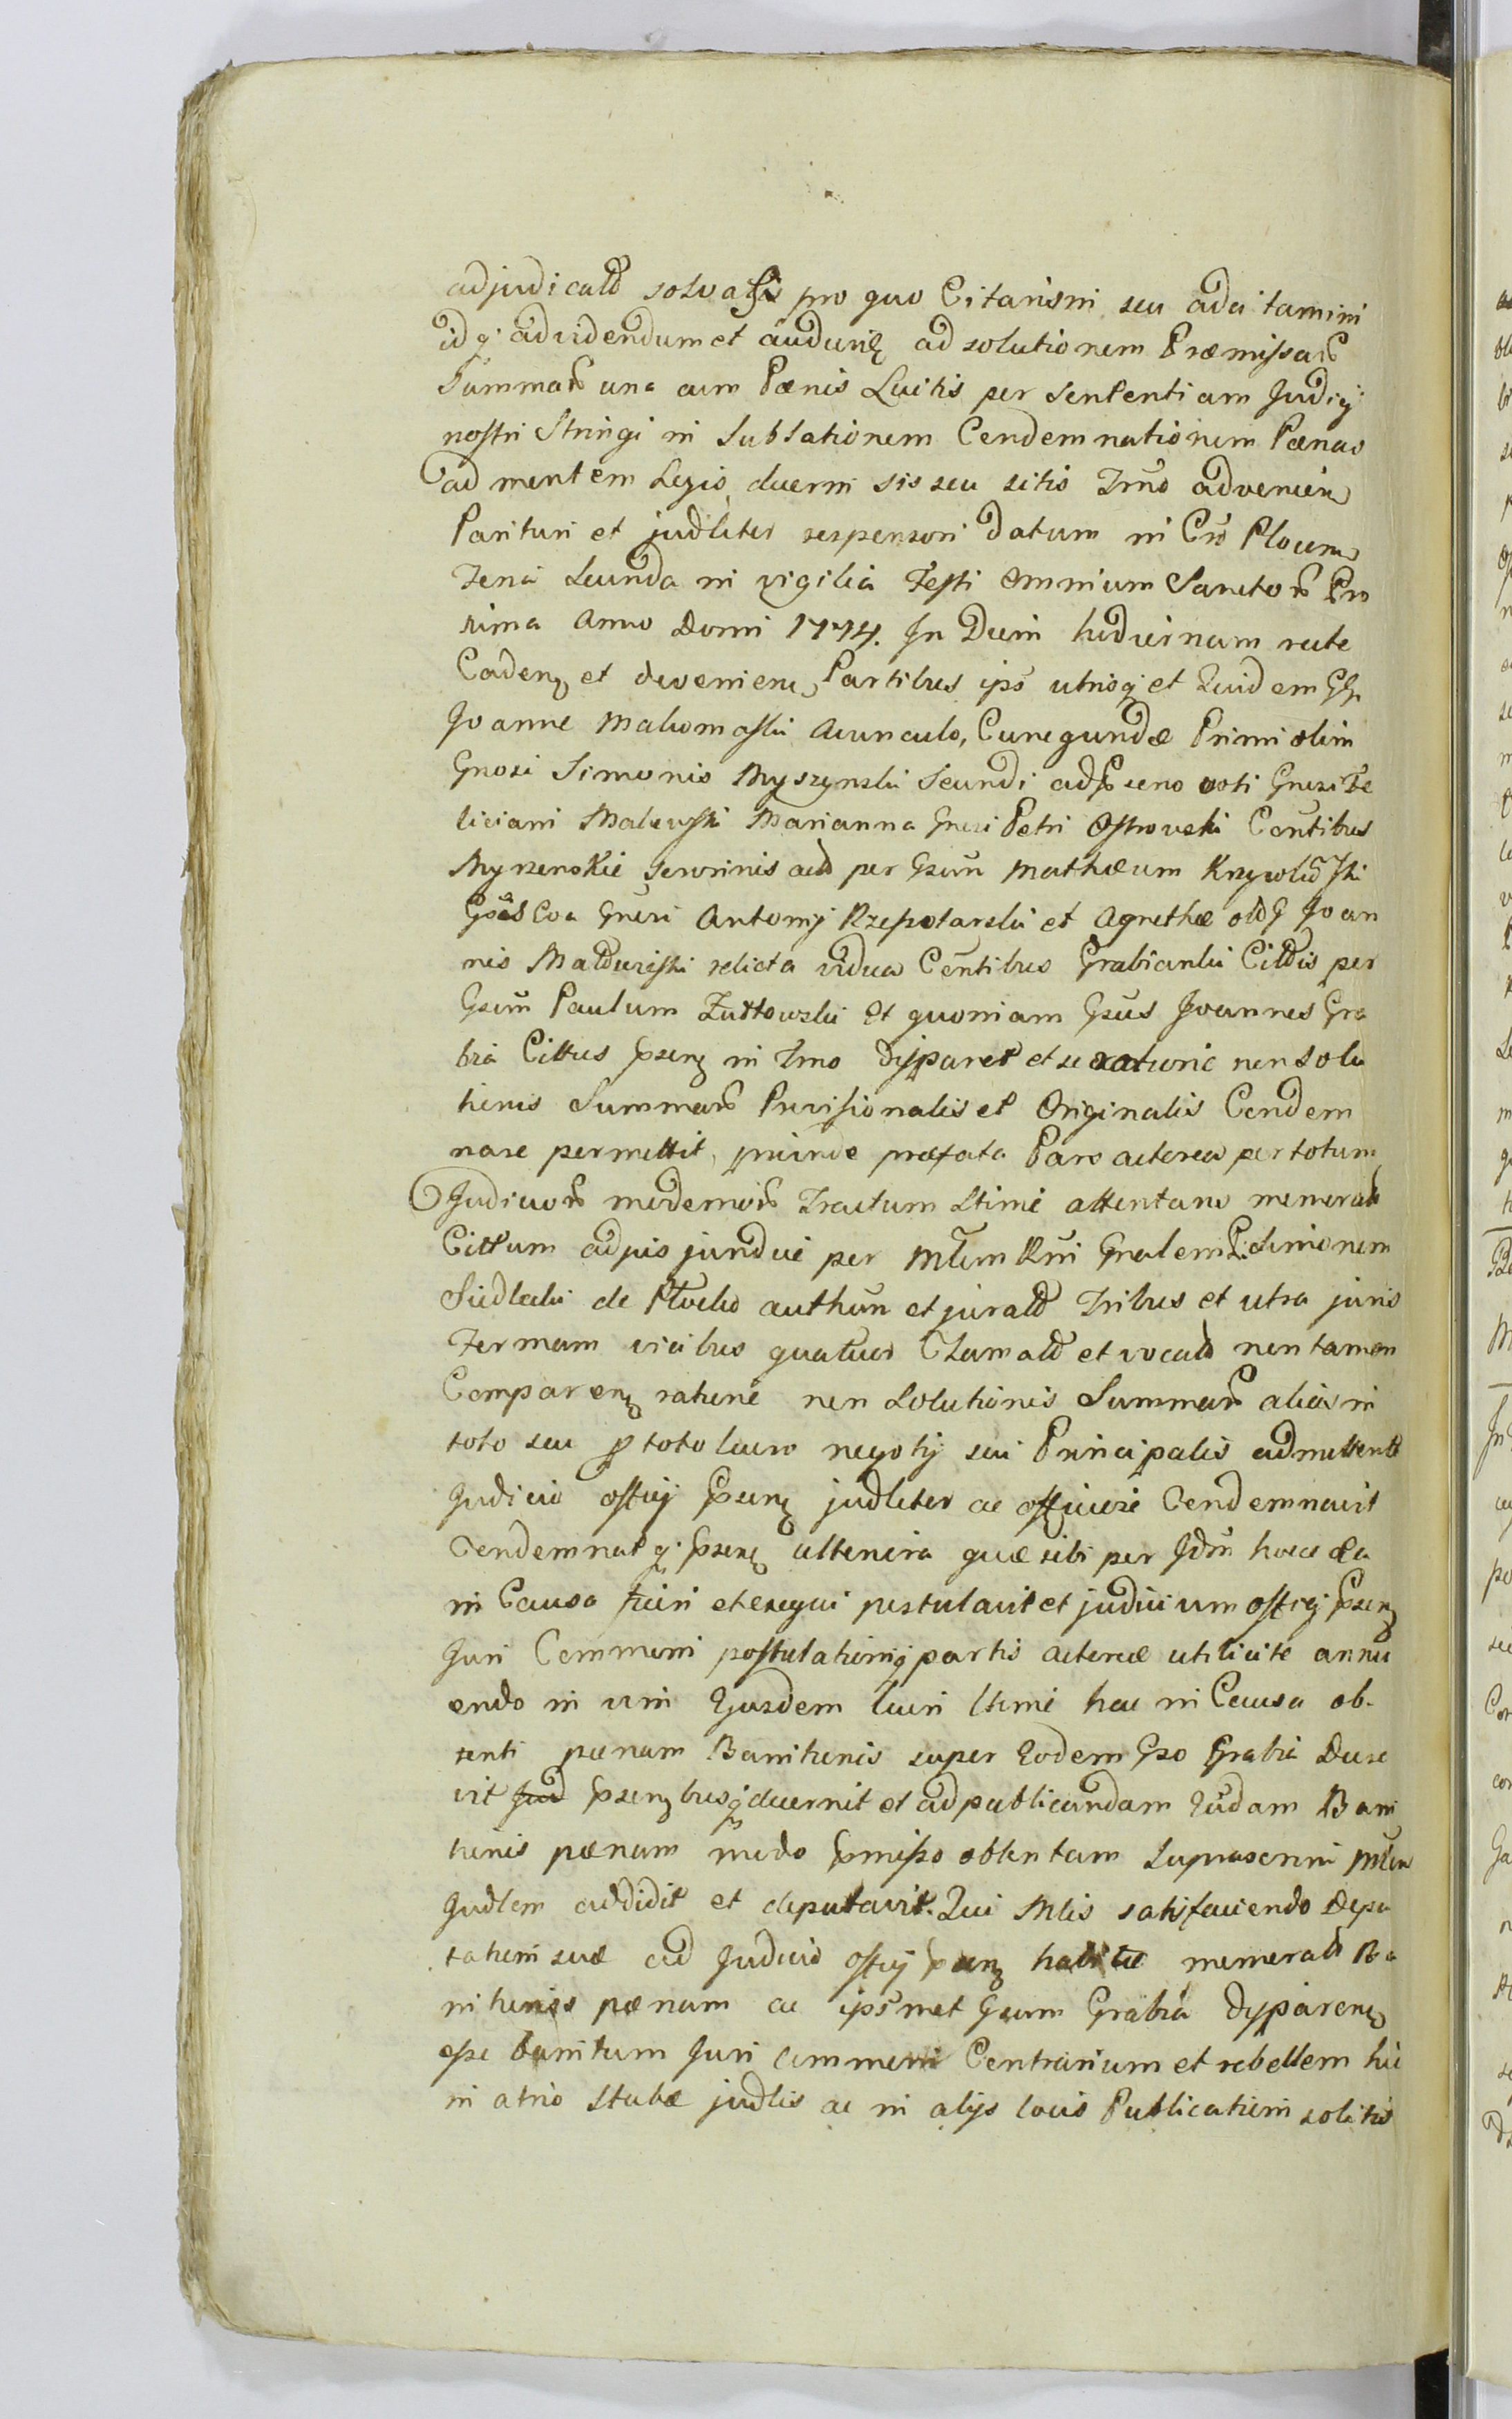 adjudicatas solvatis pro quo Citarisni seu adcitamini
idq. ad videndum et audiendū ad solutionem Præmissarū
Summarū una cum Pœnis Luitis per Sententiam Judicÿ
nostri Stringi in Sublationem Condemnationem Pœnas
ad mentem Legis decerni sis seu sitis Trno advenien
Parituri et judliter responsuri Datum in Cro Plocen
Feria Secunda in vigilia Festi Omnium Sanctorū Pro
xima Anno Domi 1774. In Quem hodiernum recte
Caden et devenien Partibus ips utrisq et Quidem GG
Joanne avunculo, Cunegundæ Primi olim
Gnosi Simonis Myszynski Secundi ad pseno voti Gnesi Fe
liciani Malewski Marianna Gnesi Petri Ostrovski Consortibus
Myszenskie Sororinis acto per Gsum Mathæum
Gsas Coa Gnesi Antonij Rzepotarski et Agnethæ old G Joan
nis relicta vidua Centibus Grabianki Cittis per
Gsum Paulum Zuttowski Et quoniam Gsus Joannes Gra
bia Cittus psen in Trno disparet et se ratione non solu
tionis Summarū Provisionalis et Originalis Condem
nare permittit, proinde præfata Pars actorea per totum
Judiciorū modernorū Tractum Ltime attentans memoratū
Cittum adpis jundue per Mlem Rni Gnalem P. Simonem
Siedlecki de Plocko authun et juratū Tribus et utra juris
Formam vicibus quatuor Clamatū et vocatū non tamen
Comparen ratione non Solutionis Summarū alias in
toto seu p toto lucro negotij sui Principalis admittente
Judicio officij psen judliter ac officiose Condemnavit
Condemnat q. psen ulteriora quæ sibi per Jdm hacce ea
in Causa fieri et exequi postulavit et judicium officij psen
Juri Communi postulationiq partis actoreæ utilicite annu
endo in vim Ejusdem lucri Ltime hac in Causa ob-
tenti pœnam Banitionis super Eodem Gso Grabia Decre
vit Jud psenbusq decernit et ad publicandam Eandam Bani
tionis pœnam modo pmisso obtentam Suprascrini Mlem
Judlem addidit et deputavit. Qui Mlis satisfaciendo Depu
tationi suæ ad Judicio officij psen habitæ memoratū Ba
nitionis pœnam ac ipsmet Gsum Grabia disparen
esse banitum Juri communi Contrarium et rebellem hic
in atrio Stubæ judlis ac in alijs locis Publicationi solitis